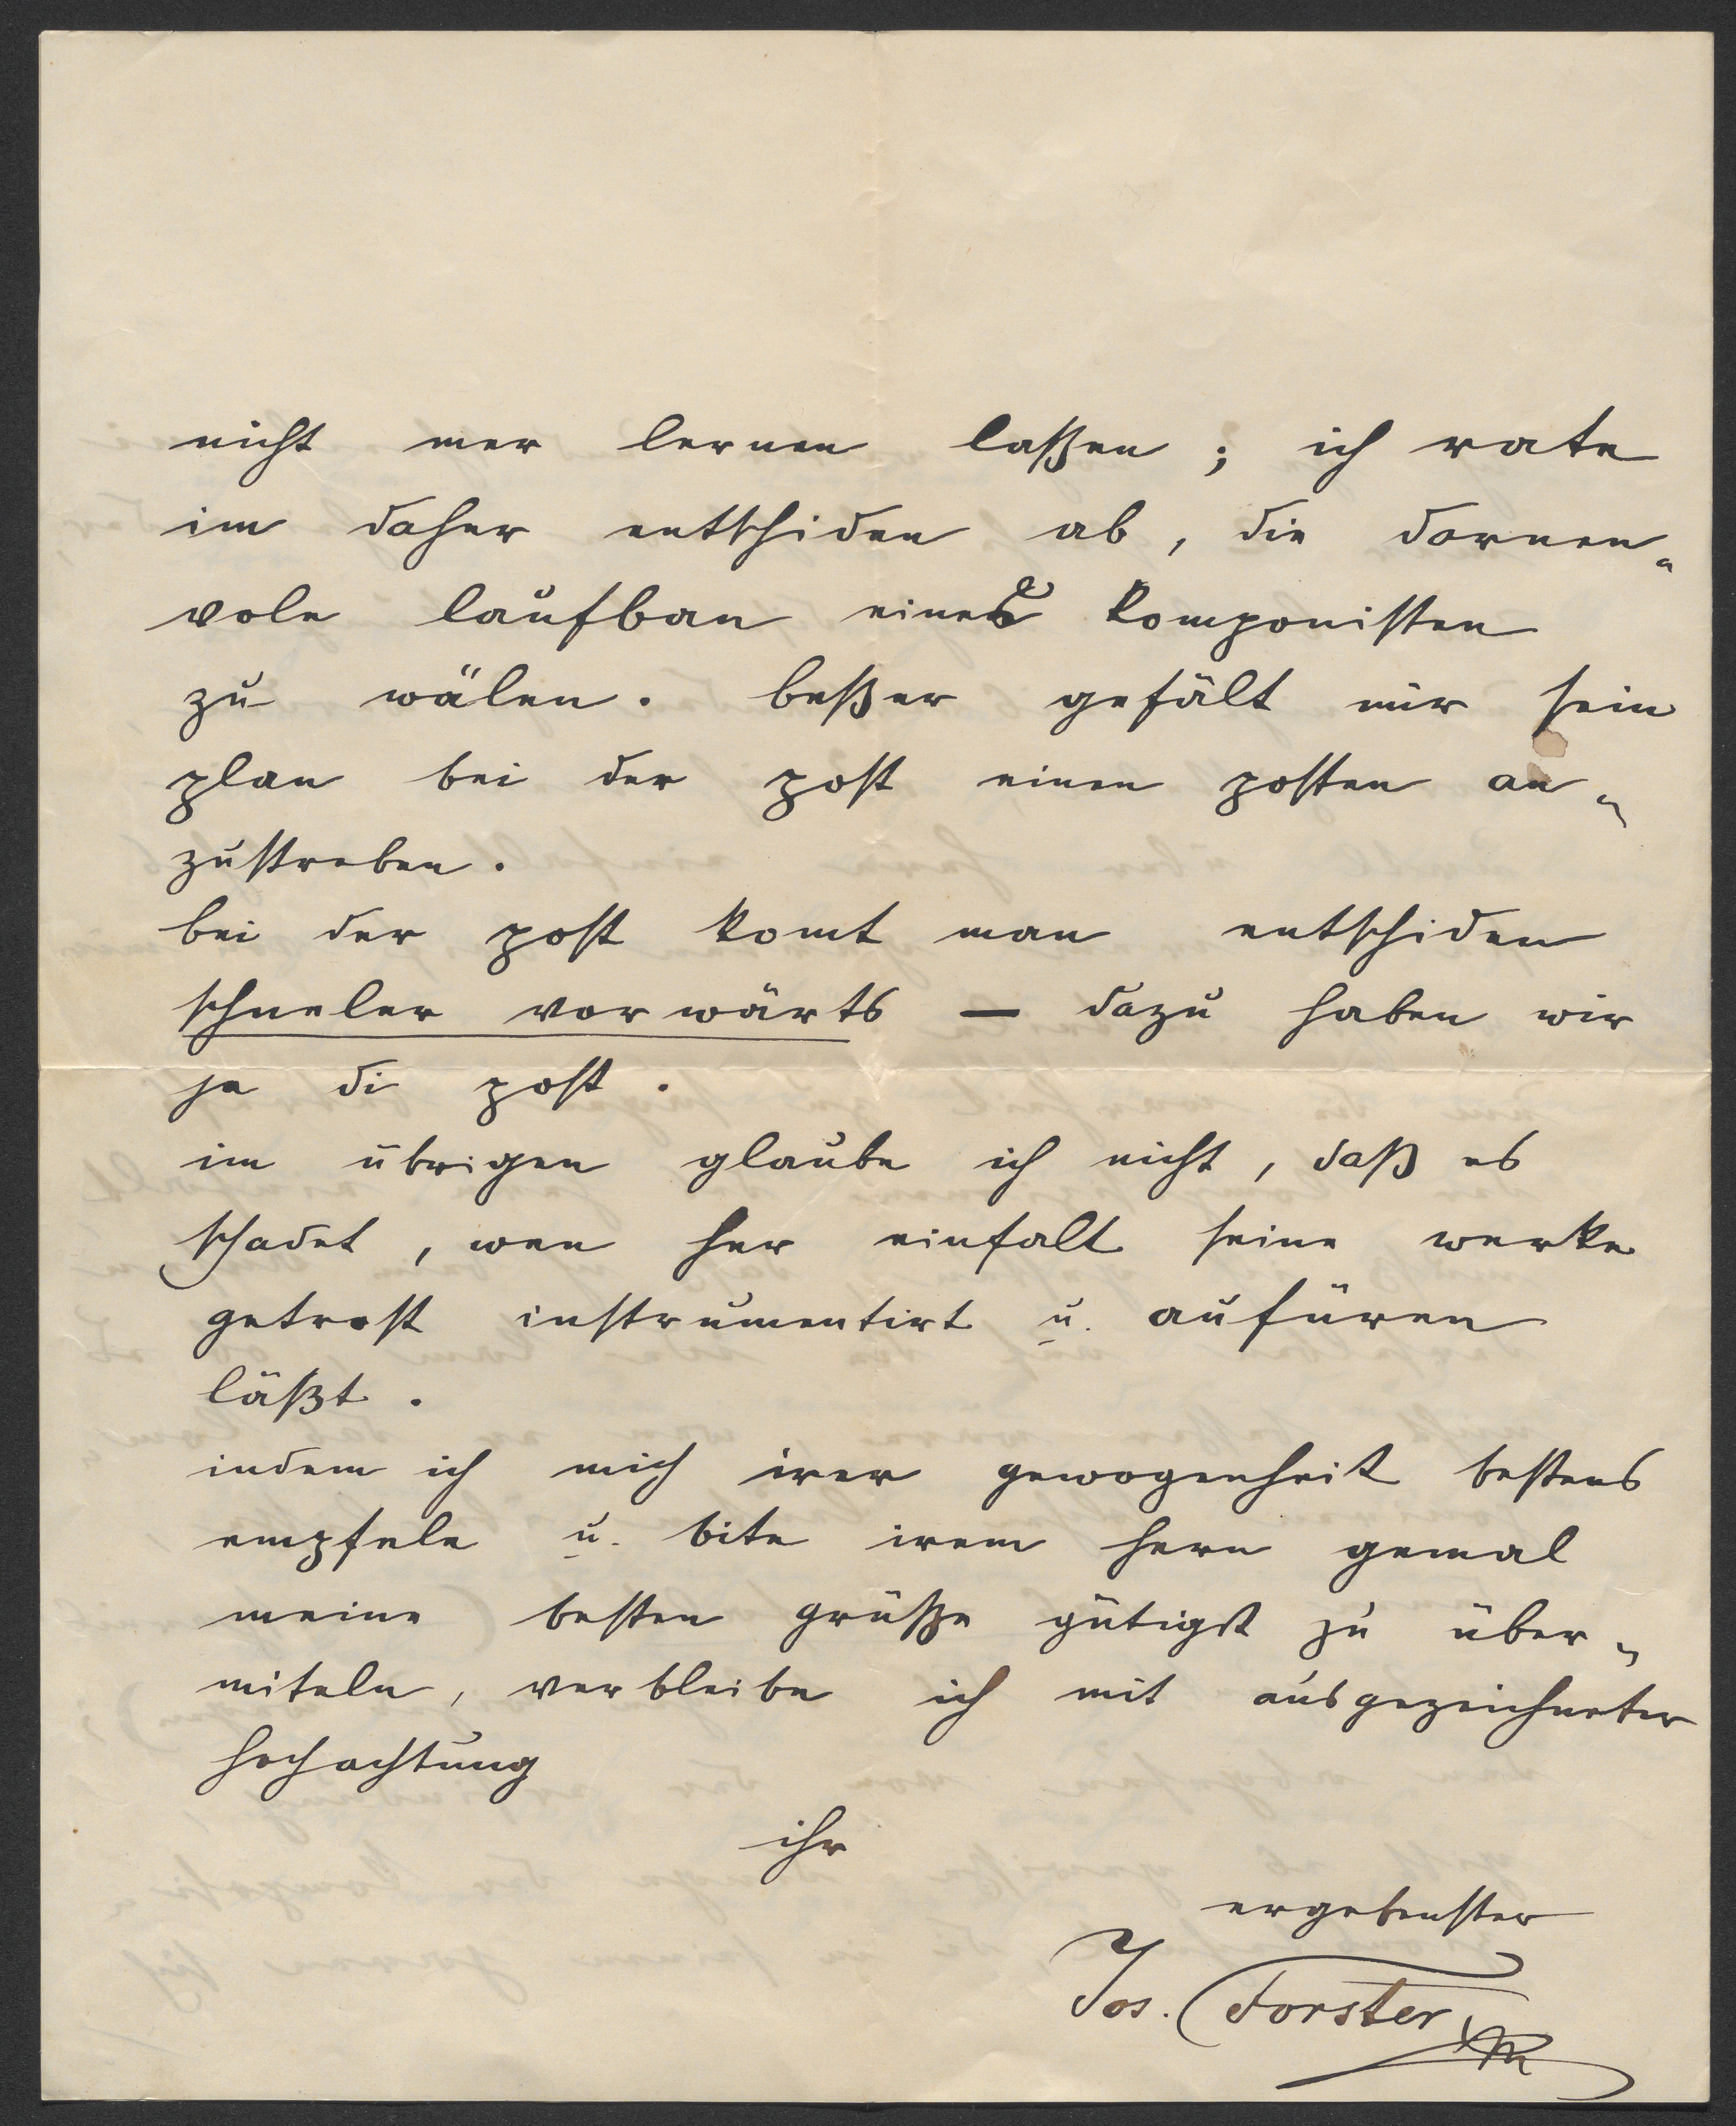 nicht mer lernen laßen; ich rate
im daher entschiden ab, die dornen-
vole laufban eines komponisten
zu wälen. beßer gefält mir sein
plan bei der post einen posten an-
zustreben.
bei der post komt man entschiden
schneler vorwärts — dazu haben wir
ja di post.
im übrigen glaube ich nicht, daß es
schadet, wen her einfalt seine werke
getrost instrumentirt u. aufüren
läßt.
indem ich mich irer gewogenheit bestens
empfele u. bite irem hern gemal
meine besten grüße gütigst zu über-
miteln, verbleibe ich mit ausgezeichneter
hochachtung
ihr
ergebenster
Jos. Forster